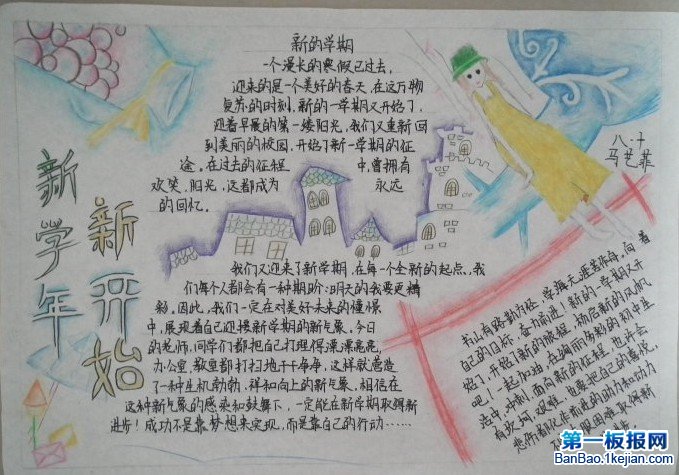 新学年
新开始
新的学期
一个漫长的寒假已过去，
迎来的是一个美好的春天，在这万物
复苏的时刻，新的一学期又开始了，
迎着早晨的第一缕阳光，我们又重新回
到美丽的校园，开始了新一学期的征
途。在过去的征程中，曾拥有
欢笑，阳光，这都成为永远
的回忆。
八.十
马艺菲
我们又迎来了新学期，在每一个全新的起点，我
们每个人都会有一种期盼：明天的我要更精
彩。因此，我们一定在对美好未来的憧憬
中，展现着自己迎接新学期的新气象，今日
的老师，同学们都把自己打理得漂漂亮亮，
办公室，教室都打扫地干干净净，这样就营造
了一种生机勃勃，祥和向上的新气象，相信在
这种新气象的感染和鼓舞下，一定能在新学期取得新
进步！成功不是靠梦想来实现，而是靠自己的行动……
书山有路勤为径，学海无涯苦作舟，向着
自己的目标，奋力前进！新的一学期又开
始了，开始了新的旅程，扬启新的风帆
吧！一起加油，在绚丽多彩的初中生
活中，冲刺！面向新的征程，也许会
有坎坷艰难，也要把自己的喜悦，
悲伤都化在前进的动力和动力
服困难取得新
第一板报网
BanBao.1kejian.com